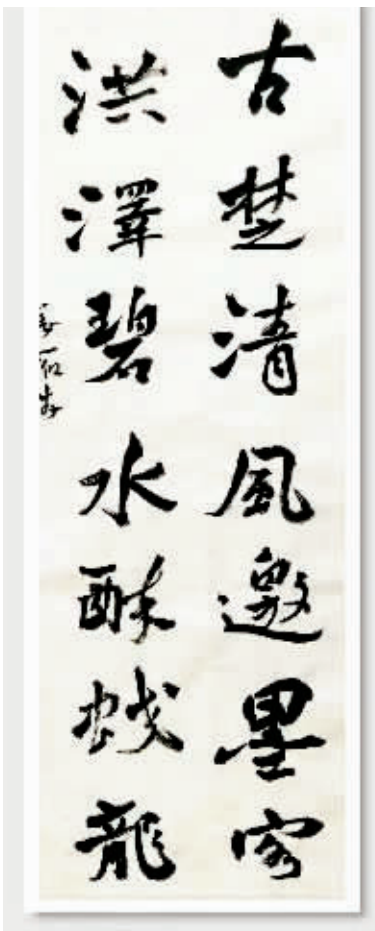 古楚清風邀墨客
洪澤碧水龍